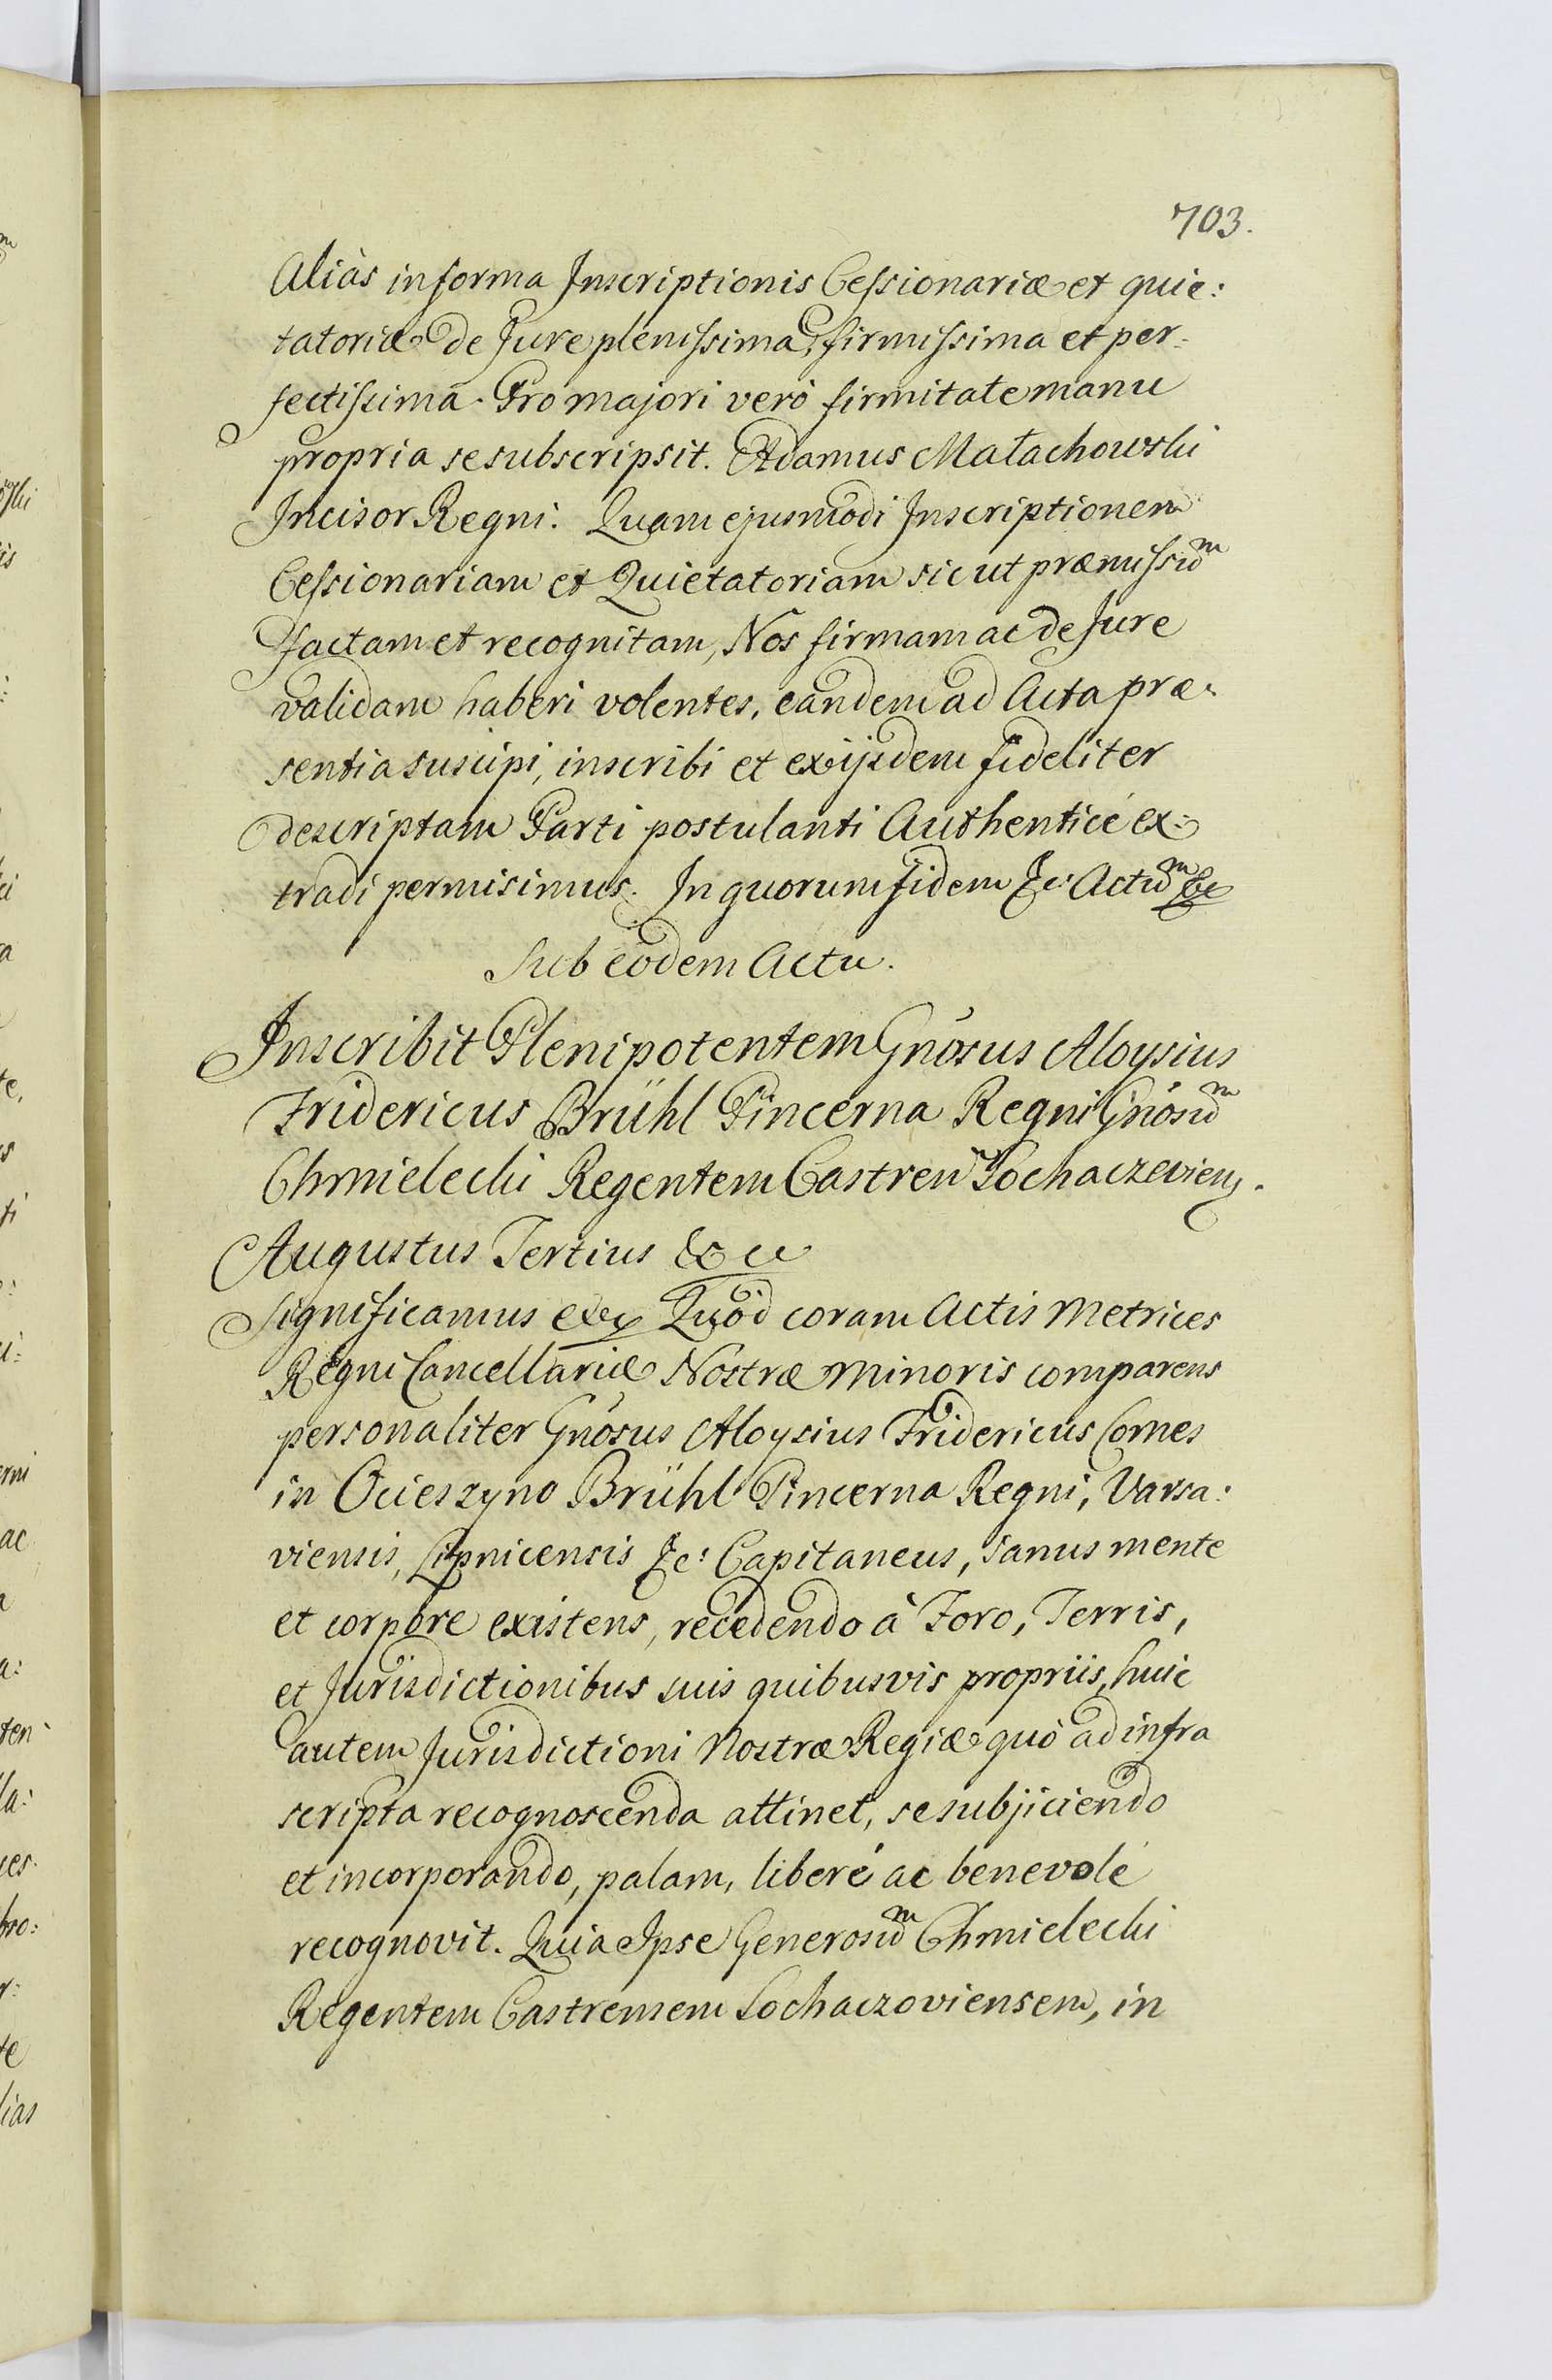 703.
Aliàs in forma Inscriptionis Cessionariæ et quie:
tatoriæ de Jure plenissima, firmissima et per:
fectissima. Pro majori verò firmitate manu
propria se subscripsit. Adamus Małachowski
Incisor Regni. Quam ejusmodi Inscriptionem
Cessionariam et Quietatoriam sic ut præmissūm
factam et recognitam, Nos firmam ac de Jure
validam haberi volentes, eandem ad Acta præ:
sentia suscipi, inscribi et ex ijsdem fideliter
descriptam Parti postulanti Authenticè ex:
tradi permisimus. In quorum fidem &c: Actūm &c
Sub eodem Actu.
Inscribit Plenipotentem Gnosus Aloysius
Fridericus Brühl Pincerna Regni Gnosūm
Chmielecki Regentem Castren Sochaczeviens.
Augustus Tertius &c cc
Significamus &c Quòd coram Actis Metrices
Regni Cancellariæ Nostræ Minoris comparens
personaliter Gnosus Aloysius Fridericus Comes
in Ocieszyno Brühl Pincerna Regni, Varsa:
viensis, Lipnicensis &c: Capitaneus, sanus mente
et corpore existens, recedendo à Foro, Terris,
et Jurisdictionibus suis quibusvis propriis, huic
autem Jurisdictioni Nostræ Regiæ quò ad infra
scripta recognoscenda attinet, se subjiciendo
et incorporando, palam, liberè ac benevolè
recognovit. Quia Ipse Generosūm Chmielecki
Regentem Castrensem Sochaczoviensem, in